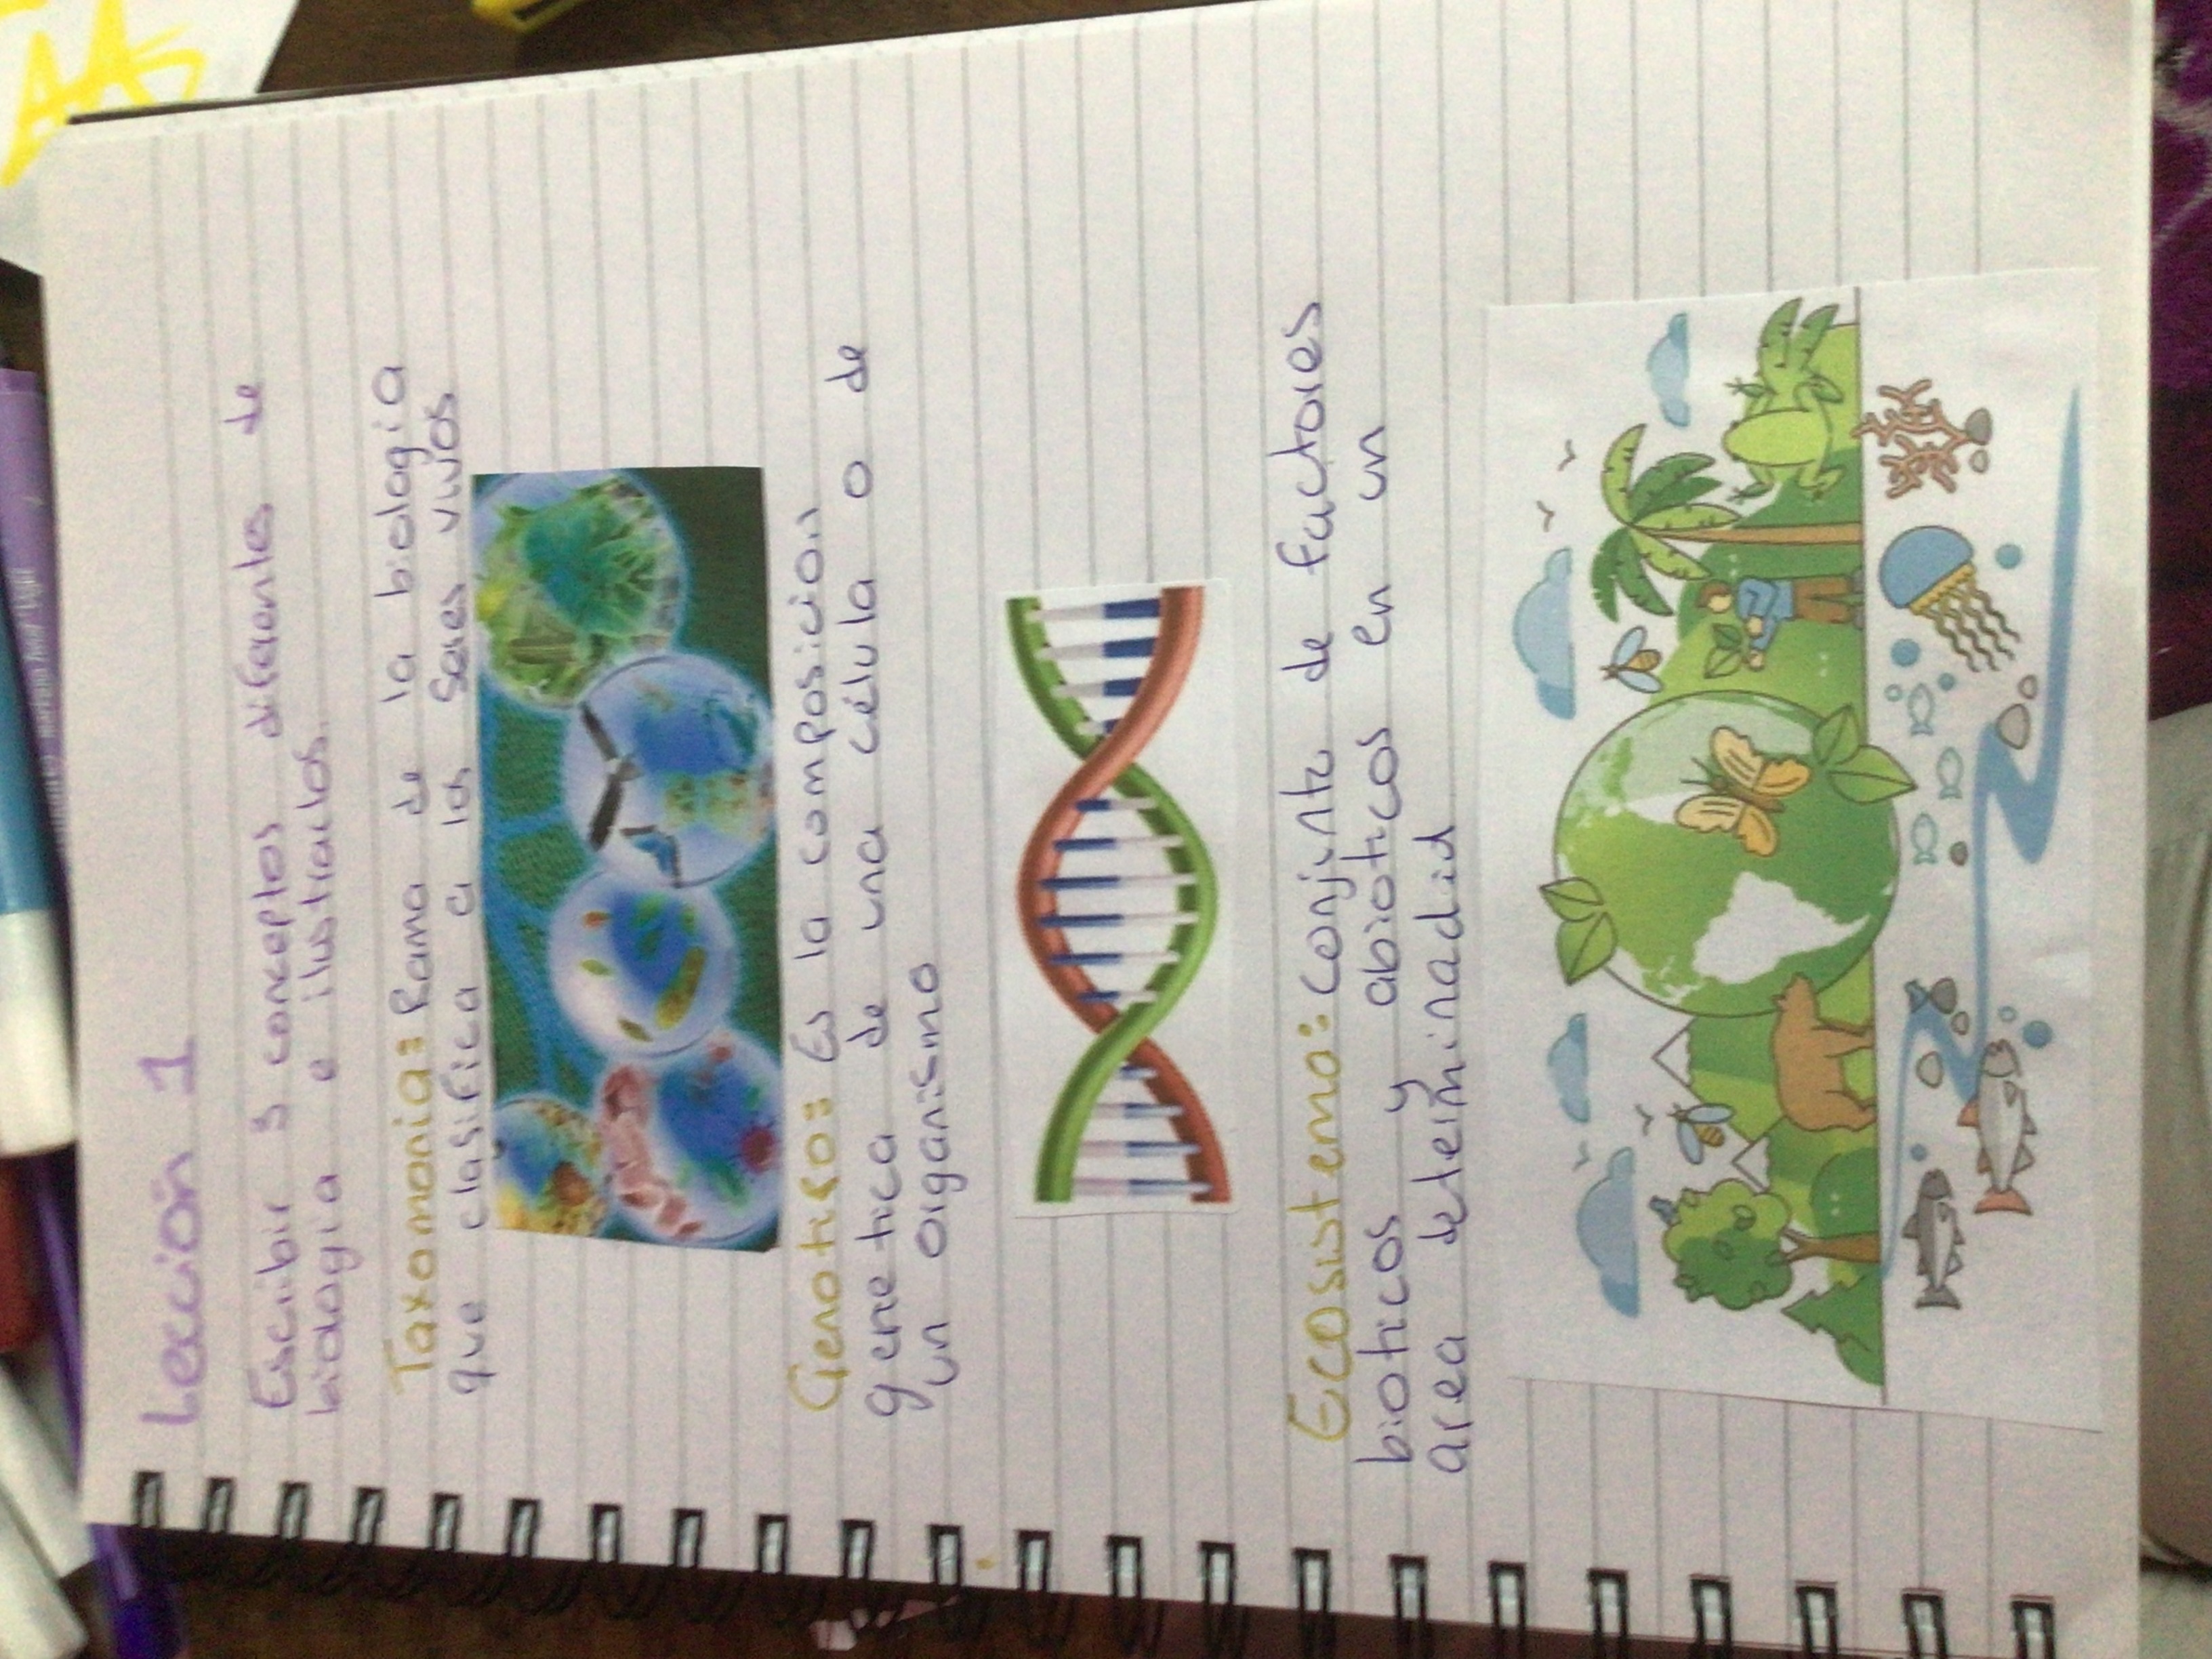 Lección 1
Escribir 3 conceptos diferentes de
biología e ilustralos.
Taxomonia: Rama de la biología
que clasifica a los seres vivos
Genotipo: Es la composición
genetica de una célula o de
un organismo
Ecosistema: conjunto de factores
bioticos y abioticos en un
area determinadid